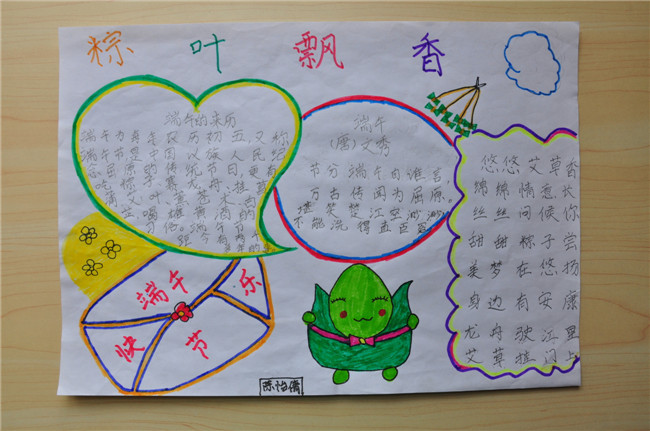 粽叶飘香
端午的来历
端午为每年农历初五,又称
端午节是中国汉族人民纪
念屈原的传统节日,更有
吃粽子赛龙舟,挂
蒲艾叶,
五喝雄黄酒的
习俗。端午节
距今有
端午
(唐)文秀
节分端午自谁言
万古传闻为屈原。
堪笑楚江空渺渺
不能洗得直臣冤
悠悠艾草香
绵绵情意长
丝丝问候你
甜甜粽子尝
美梦在悠扬
身边有安康
龙舟驶江里
艾草挂门上
端午
快节
乐
陈怡